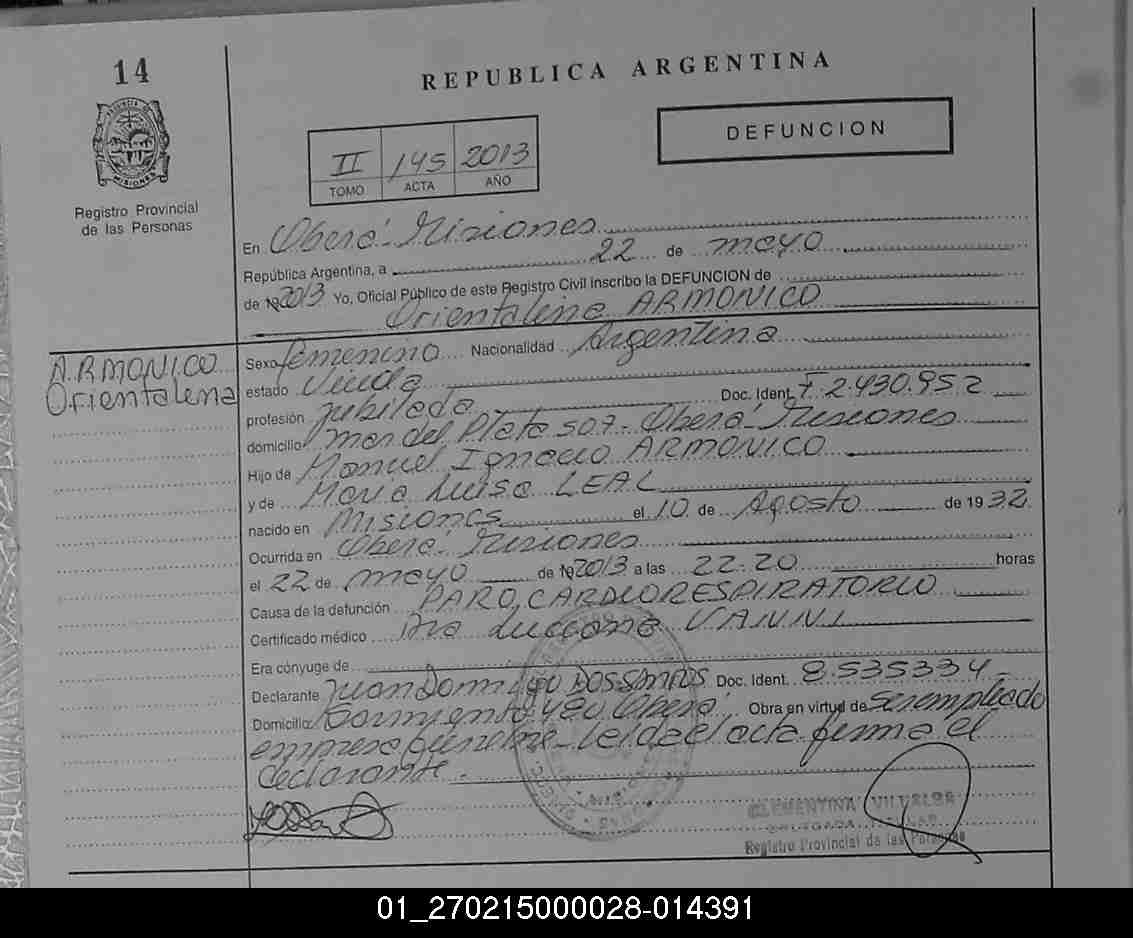 14
REPUBLICA ARGENTINA
DEFUNCION
II 145 2013
TOMO ACTA AÑO
PROVINCIA DE MISIONES
Registro Provincial
de las Personas
En Oberá - Misiones
República Argentina, a 22 de mayo
de 19 2013 Yo, Oficial Público de este Registro Civil inscribo la DEFUNCION de
Orientalina ARMONICO
ARMONICO
Orientalina
Sexo femenino Nacionalidad Argentina
estado Viuda
profesión jubilada Doc. Ident. F 2.430.952
domicilio Mar del Plata 507 - Oberá - Misiones
Hijo de Manuel Ignacio ARMONICO
y de Maria Luisa LEAL
nacido en Misiones el 10 de Agosto de 1932
Ocurrida en Oberá - Misiones
el 22 de mayo de 19 2013 a las 22:20 horas
Causa de la defunción PARO CARDIORESPIRATORIO
Certificado médico Dra Luciana VANNI
Era cónyuge de
Declarante Juan Domingo DOSSANTOS Doc. Ident. 8.535334
Domicilio Sarmiento 480 Oberá Obra en virtud de ser empleado
empresa funebre - Leida el acta firma el
declarante.
CLEMENTINA VILLALBA
DELEGADA TITULAR
Registro Provincial de las Personas
01_270215000028-014391